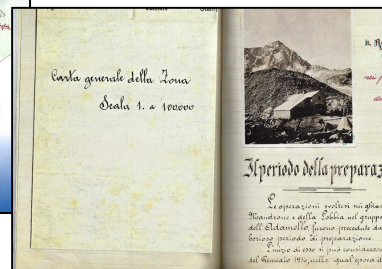 Carta generale della Zona
Scala 1. a 100000
Il periodo della preparaz
Le operazioni svoltesi sui ghiac
Mandrone e della Lobbia nel gruppo
dell'Adamello, furono precedute da
borioso periodo di preparazione.
L'inizio di esso si può considerare
del Gennaio 1916, nella qual epoca d